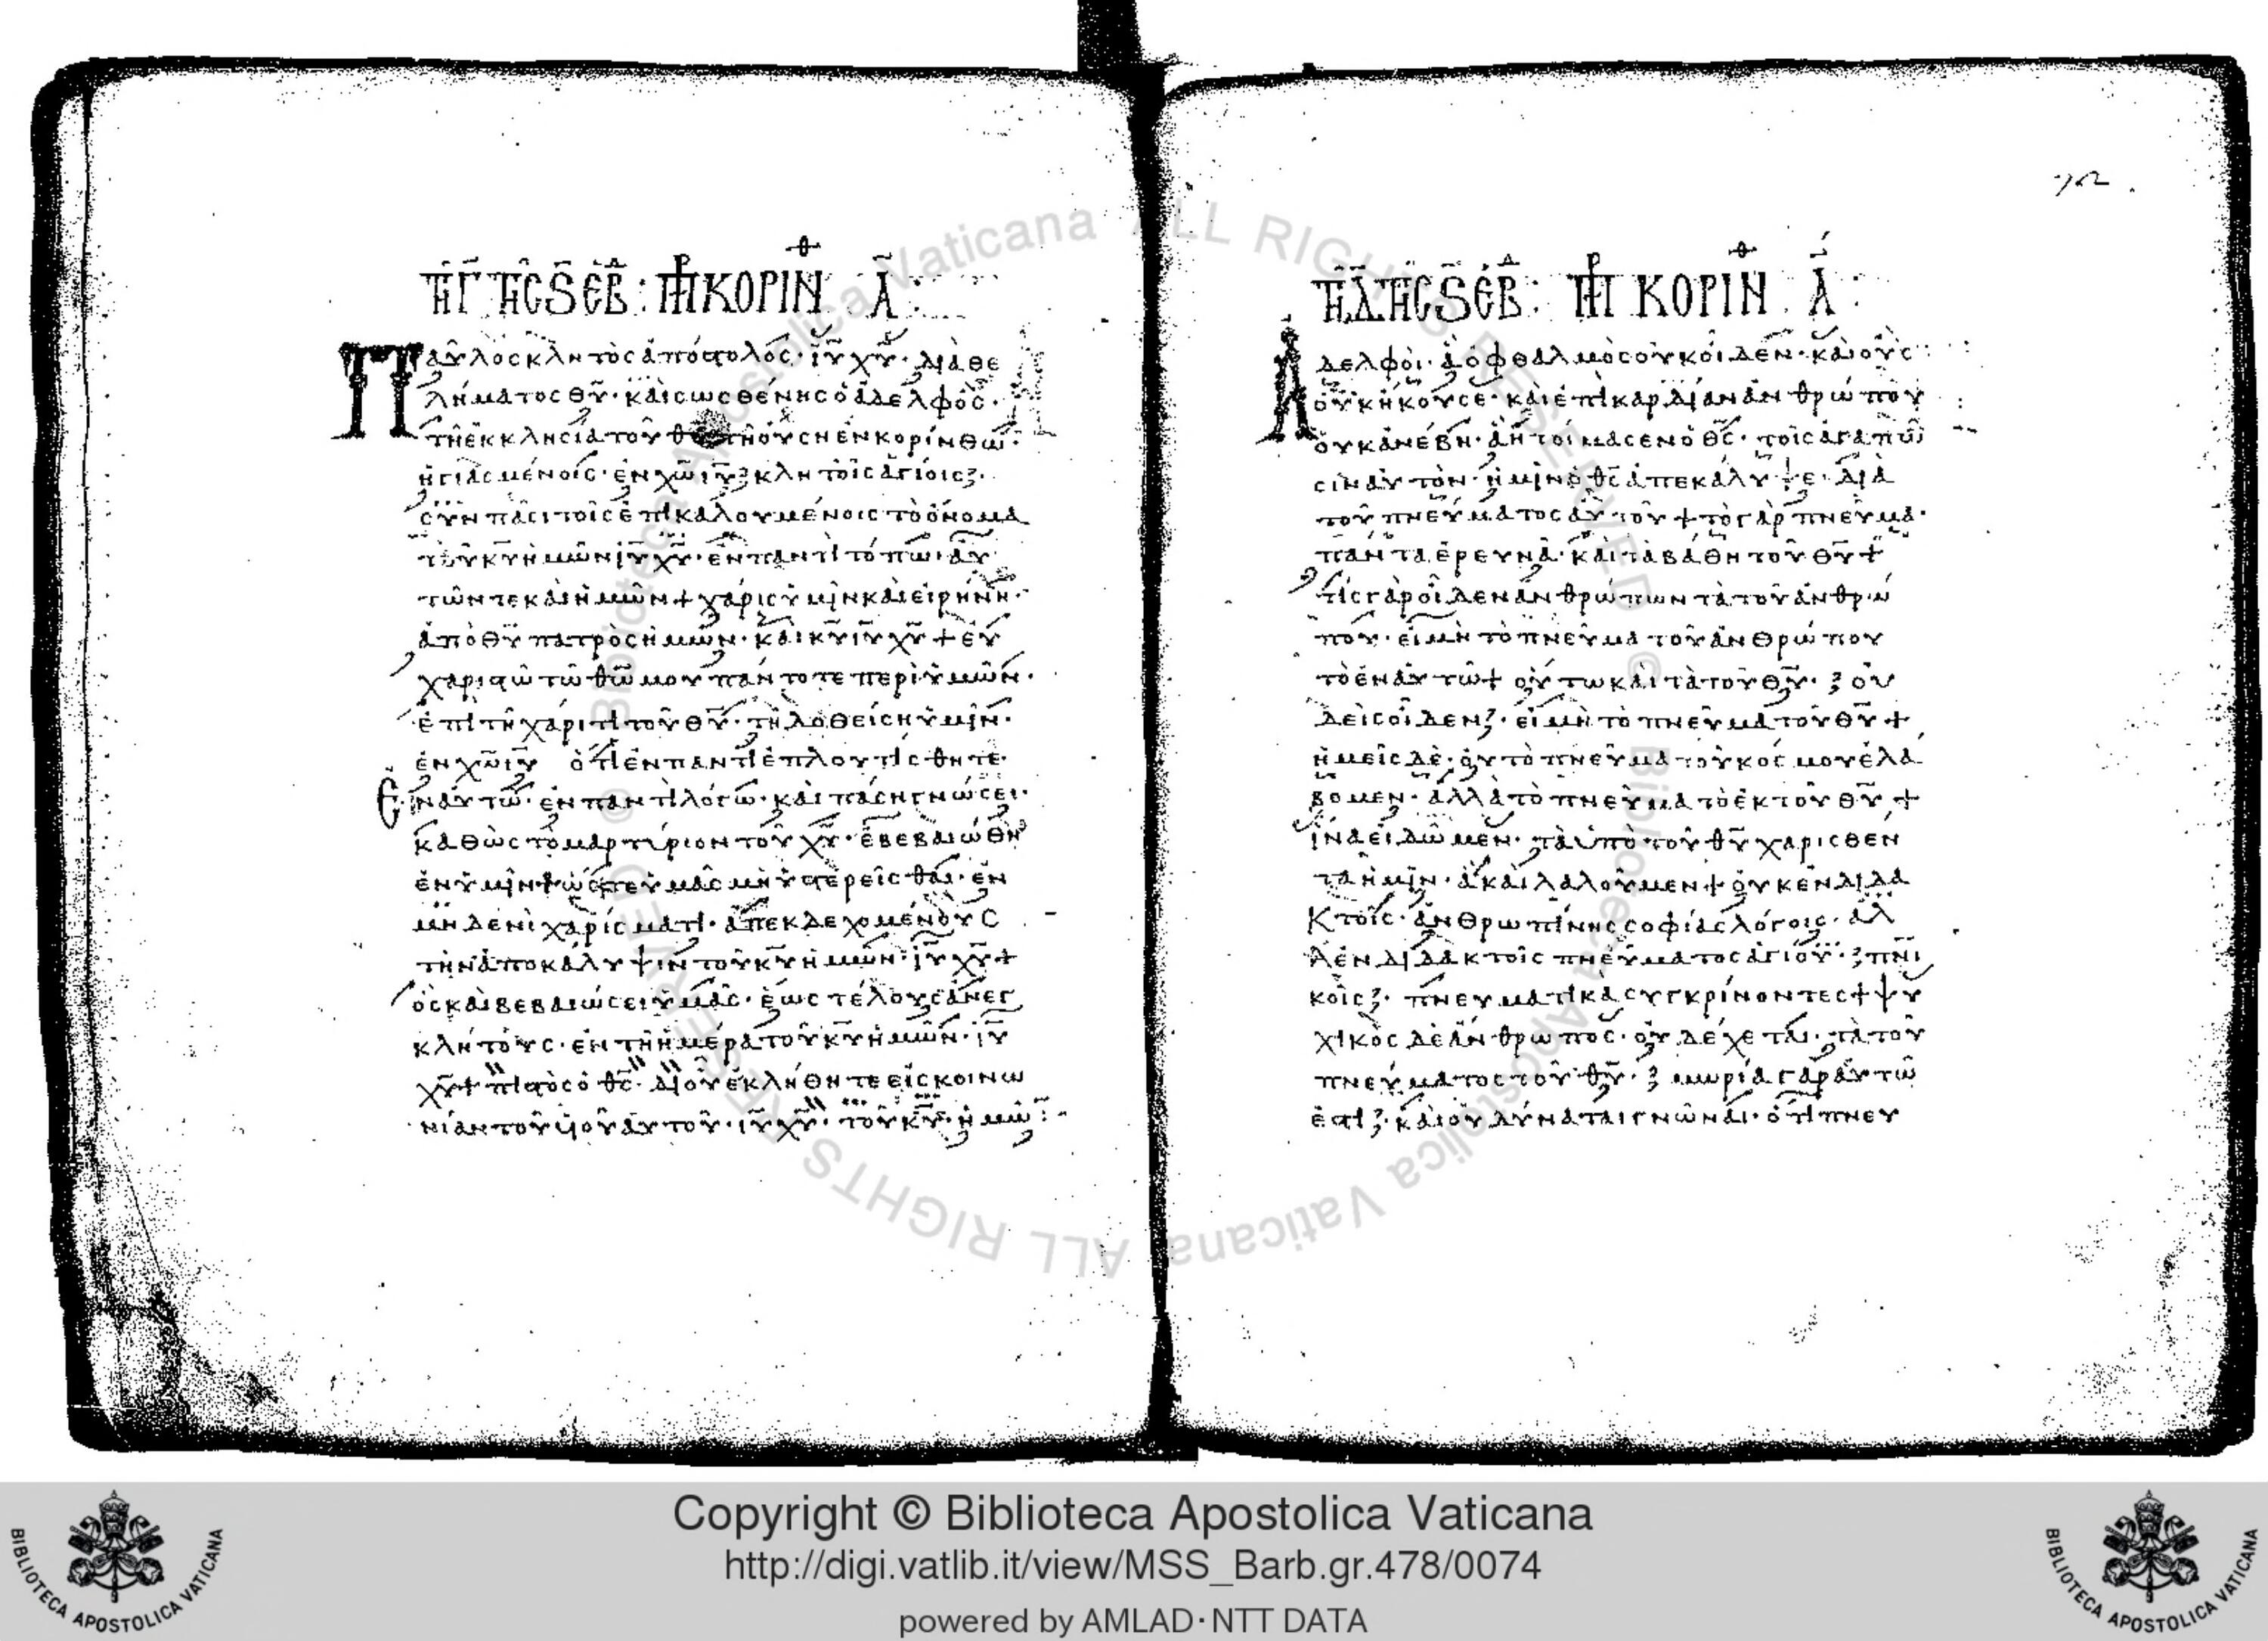 τῇ γ̄ τῆς ς̄ ἑβδ: πρ κορινθ ᾱ:
Παῦλος κλητὸς ἀπόστολος· ἰῡ χῡ· διὰ θε
λήματος θῡ· καὶ σωσθένης ὁ ἀδελφὸς·
τῇ ἐκκλησία τοῦ θῡ τῇ οὔση ἐν κορίνθω·
ἡγιασμένοις· ἐν χω̄ ιῡ κλητοῖς ἁγίοις·
σὺν πᾶσι τοῖς ἐπικαλουμένοις τὸ ὄνομα
τοῦ κῡ ἡμῶν ιῡ χῡ· ἐν παντὶ τόπω· αὐ
τῶν τε καὶ ἡμῶν + χάρις ὑμῖν καὶ εἰρήνη·
ἀπὸ θῡ πατρὸς ἡμῶν· καὶ κῡ ιῡ χῡ + εὐ
χαριστῶ τῶ θω̄ μου πάντοτε περὶ ὑμῶν·
ἐπὶ τῆ χάριτι τοῦ θῡ· τῆ δοθείση ὑμῖν·
ἐν χω̄ ιῡ ὅτι ἐν παντὶ ἐπλουτίσθητε·
Ἐν αὐτῶ· ἐν παντὶ λόγω· καὶ πάση γνώσει·
καθὼς τὸ μαρτύριον τοῦ χῡ· ἐβεβαιώθη
ἐν ὑμῖν + ὥστε ὑμᾶς μὴ ὑστερεῖσθαι· ἐν
μηδενὶ χαρίσματι· ἀπεκδεχομένους
τὴν ἀποκάλυψιν τοῦ κῡ ἡμῶν· ιῡ χῡ +
ὃς καὶ βεβαιώσει ὑμᾶς· ἕως τέλους ἀνεγ
κλήτους· ἐν τῆ ἡμέρα τοῦ κῡ ἡμῶν· ιῡ
χῡ + πιστὸς ὁ θς̄· δι οὗ ἐκλήθητε εἰς κοινω
νίαν τοῦ υἱοῦ αὐτοῦ· ιῡ χῡ· τοῦ κῡ· ἡμῶ:
τῇ δ̄ τῆς ς̄ ἑβδ: πρ κορινθ ᾱ:
Ἀδελφοὶ· ἃ ὀφθαλμὸς οὐκ οἶδεν· καὶ οὖς
οὐκ ἤκουσε· καὶ ἐπὶ καρδίαν ἀνθρώπου
οὐκ ἀνέβη· ἃ ἡτοίμασεν ὁ θς̄· τοῖς ἀγαπῶ
σιν αὐτὸν· ἡμῖν ὁ θς̄ ἀπεκάλυψε· διὰ
τοῦ πνεύματος αὐτοῦ + τὸ γὰρ πνεῦμα·
πάντα ἐρευνᾶ· καὶ τὰ βάθη τοῦ θῡ +
τίς γὰρ οἶδεν ἀνθρώπων τὰ τοῦ ἀνθρώ
που· εἰ μὴ τὸ πνεῦμα τοῦ ἀνθρώπου
τὸ ἐν αὐτῶ + οὕτω καὶ τὰ τοῦ θῡ· οὐ
δεὶς οἶδεν· εἰ μὴ τὸ πνεῦμα τοῦ θῡ +
ἡμεῖς δὲ· οὐ τὸ πνεῦμα τοῦ κόσμου ἐλά
βομεν· ἀλλὰ τὸ πνεῦμα τὸ ἐκ τοῦ θῡ +
ἵνα εἰδῶμεν· τὰ ὑπὸ τοῦ θῡ χαρισθέν
τα ἡμῖν· ἃ καὶ λαλοῦμεν + οὐκ ἐν διδα
κτοῖς· ἀνθρωπίνης σοφίας λόγοις· ἀλ
λ ἐν διδακτοῖς πνεύματος ἁγίου· πνι
κοῖς· πνευματικὰ συγκρίνοντες + ψυ
χικὸς δὲ ἄνθρωπος· οὐ δέχεται· τὰ τοῦ
πνεύματος τοῦ θῡ· μωρία γὰρ αὐτῶ
ἐστι· καὶ οὐ δύναται γνῶναι· ὅτι πνευ
Copyright © Biblioteca Apostolica Vaticana
http://digi.vatlib.it/view/MSS_Barb.gr.478/0074
powered by AMLAD·NTT DATA
BIBLIOTECA APOSTOLICA VATICANA
BIBLIOTECA APOSTOLICA VATICANA